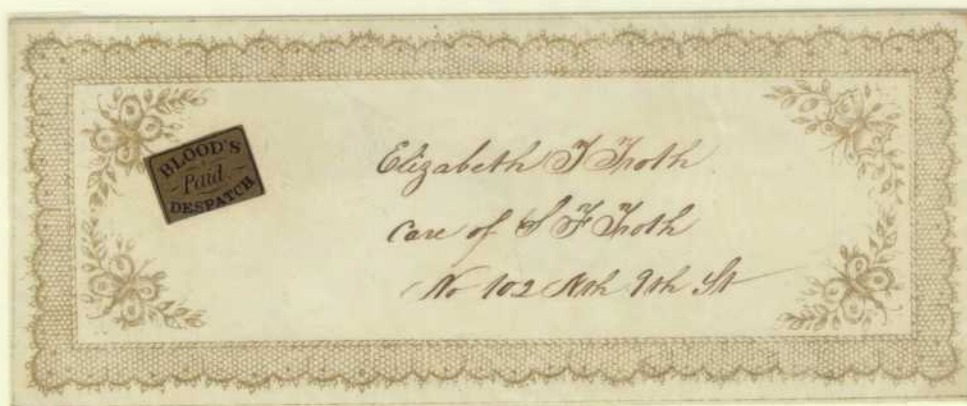 BLOOD'S
Paid
DESPATCH
Elizabeth T Troth
care of S F Troth
No 102 Nth 9th St